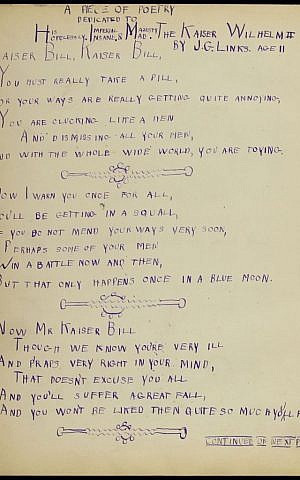 A PIECE OF POETRY
DEDICATED TO
HIS IMPERIAL MAJESTY THE KAISER WILHELM II
HOPELESSLY, INSANE, & MAD.
BY J.G. LINKS. AGE 11
KAISER BILL, KAISER BILL,
YOU MUST REALLY TAKE A PILL,
FOR YOUR WAYS ARE REALLY GETTING QUITE ANNOYING,
YOU ARE CLUCKING LIKE A HEN
AND DISMISSING ALL YOUR MEN,
AND WITH THE WHOLE WIDE WORLD, YOU ARE TOYING.
NOW I WARN YOU ONCE FOR ALL,
YOU'LL BE GETTING IN A SQUALL,
IF YOU DO NOT MEND YOUR WAYS VERY SOON,
PERHAPS SOME OF YOUR MEN
WIN A BATTLE NOW AND THEN,
BUT THAT ONLY HAPPENS ONCE IN A BLUE MOON.
NOW MR KAISER BILL
THOUGH WE KNOW YOU'RE VERY ILL
AND P'RAPS VERY RIGHT IN YOUR MIND,
THAT DOESN'T EXCUSE YOU ALL
AND YOU'LL SUFFER A GREAT FALL,
AND YOU WON'T BE LIKED THEN QUITE SO MUCH
CONTINUED ON NEXT P